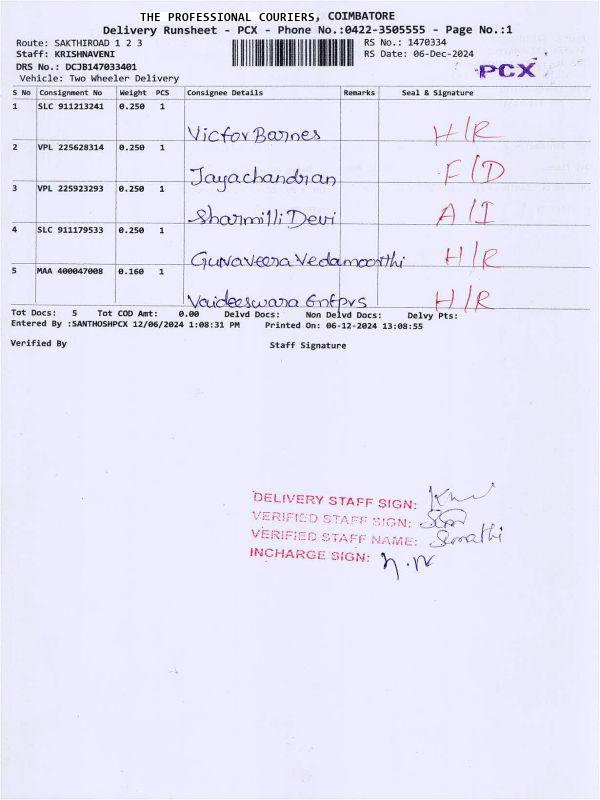 THE PROFESSIONAL COURIERS, COIMBATORE
Delivery Runsheet - PCX - Phone No.:0422-3505555 - Page No.:1
Route: SAKTHIROAD 1 2 3 RS No.: 1470334
Staff: KRISHNAVENI RS Date: 06-Dec-2024
DRS No.: DCJB147033401 PCX
Vehicle: Two Wheeler Delivery
S No Consignment No Weight PCS Consignee Details Remarks Seal & Signature
1 SLC 911213241 0.250 1 Victor Barnes H/R
2 VPL 225628314 0.250 1 Jayachandran F/D
3 VPL 225923293 0.250 1 Sharmilli Devi A/I
4 SLC 911179533 0.250 1 Guruveera Vedamoorthi H/R
5 MAA 400047008 0.160 1 Vaideeswara Entprs H/R
Tot Docs: 5 Tot COD Amt: 0.00 Delvd Docs: Non Delvd Docs: Delvy Pts:
Entered By :SANTHOSHPCX 12/06/2024 1:08:31 PM Printed On: 06-12-2024 13:08:55
Verified By Staff Signature
DELIVERY STAFF SIGN:
VERIFIED STAFF SIGN:
VERIFIED STAFF NAME: Sumathi
INCHARGE SIGN: